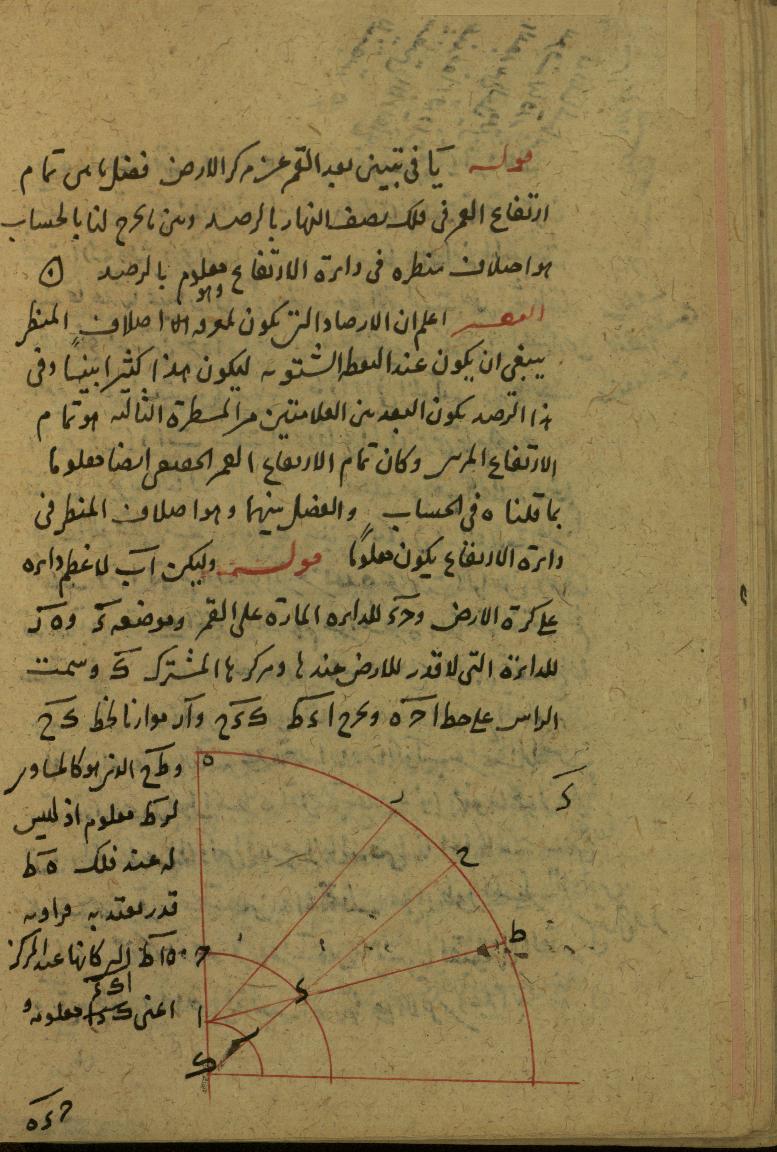 قوله يا فى تبيين بعد القمر عن مركز الارض فضل ما بين تمام
ارتفاع القمر فى فلك نصف النهار بالرصد وبين ما يخرج لنا بالحساب
هو اختلاف منظره فى دائرة الارتفاع وهو معلوم بالرصد
اعلم ان الارصاد التى تكون لمعرفة اختلاف المنظر
ينبغى ان يكون عند النقطة الشتوية ليكون هذا كثيرا بينا وفى
هذا الرصد يكون البعد بين العلامتين من المسطرة الثالثة هو تمام
الارتفاع المرئى وكان تمام الارتفاع القمر الحقيقى ايضا معلوما
بما قلناه فى الحساب والفضل بينهما وهو اختلاف المنظر فى
دائرة الارتفاع يكون معلوما قوله وليكن اب لاعظم دائره
على كرة الارض وحء للدائره المارة على القمر وموضعه ء وه ز
للدائرة التى لا قدر للارض عندها ومركزها المشترك ك وسمت
الراس على خط احه ونخرج اءط كءح وار موازيا لخط كح
وطح الذى هو كالمساوى
لرط معلوم اذ ليس
له عند فلك ه ط
قدر يعتد به فزاويه
ه ا ط التى كانها عند المركز
اعنى معلومه و
اكء
حءه
ء
ه
ر
ح
ط
ح
ء
ا
ك